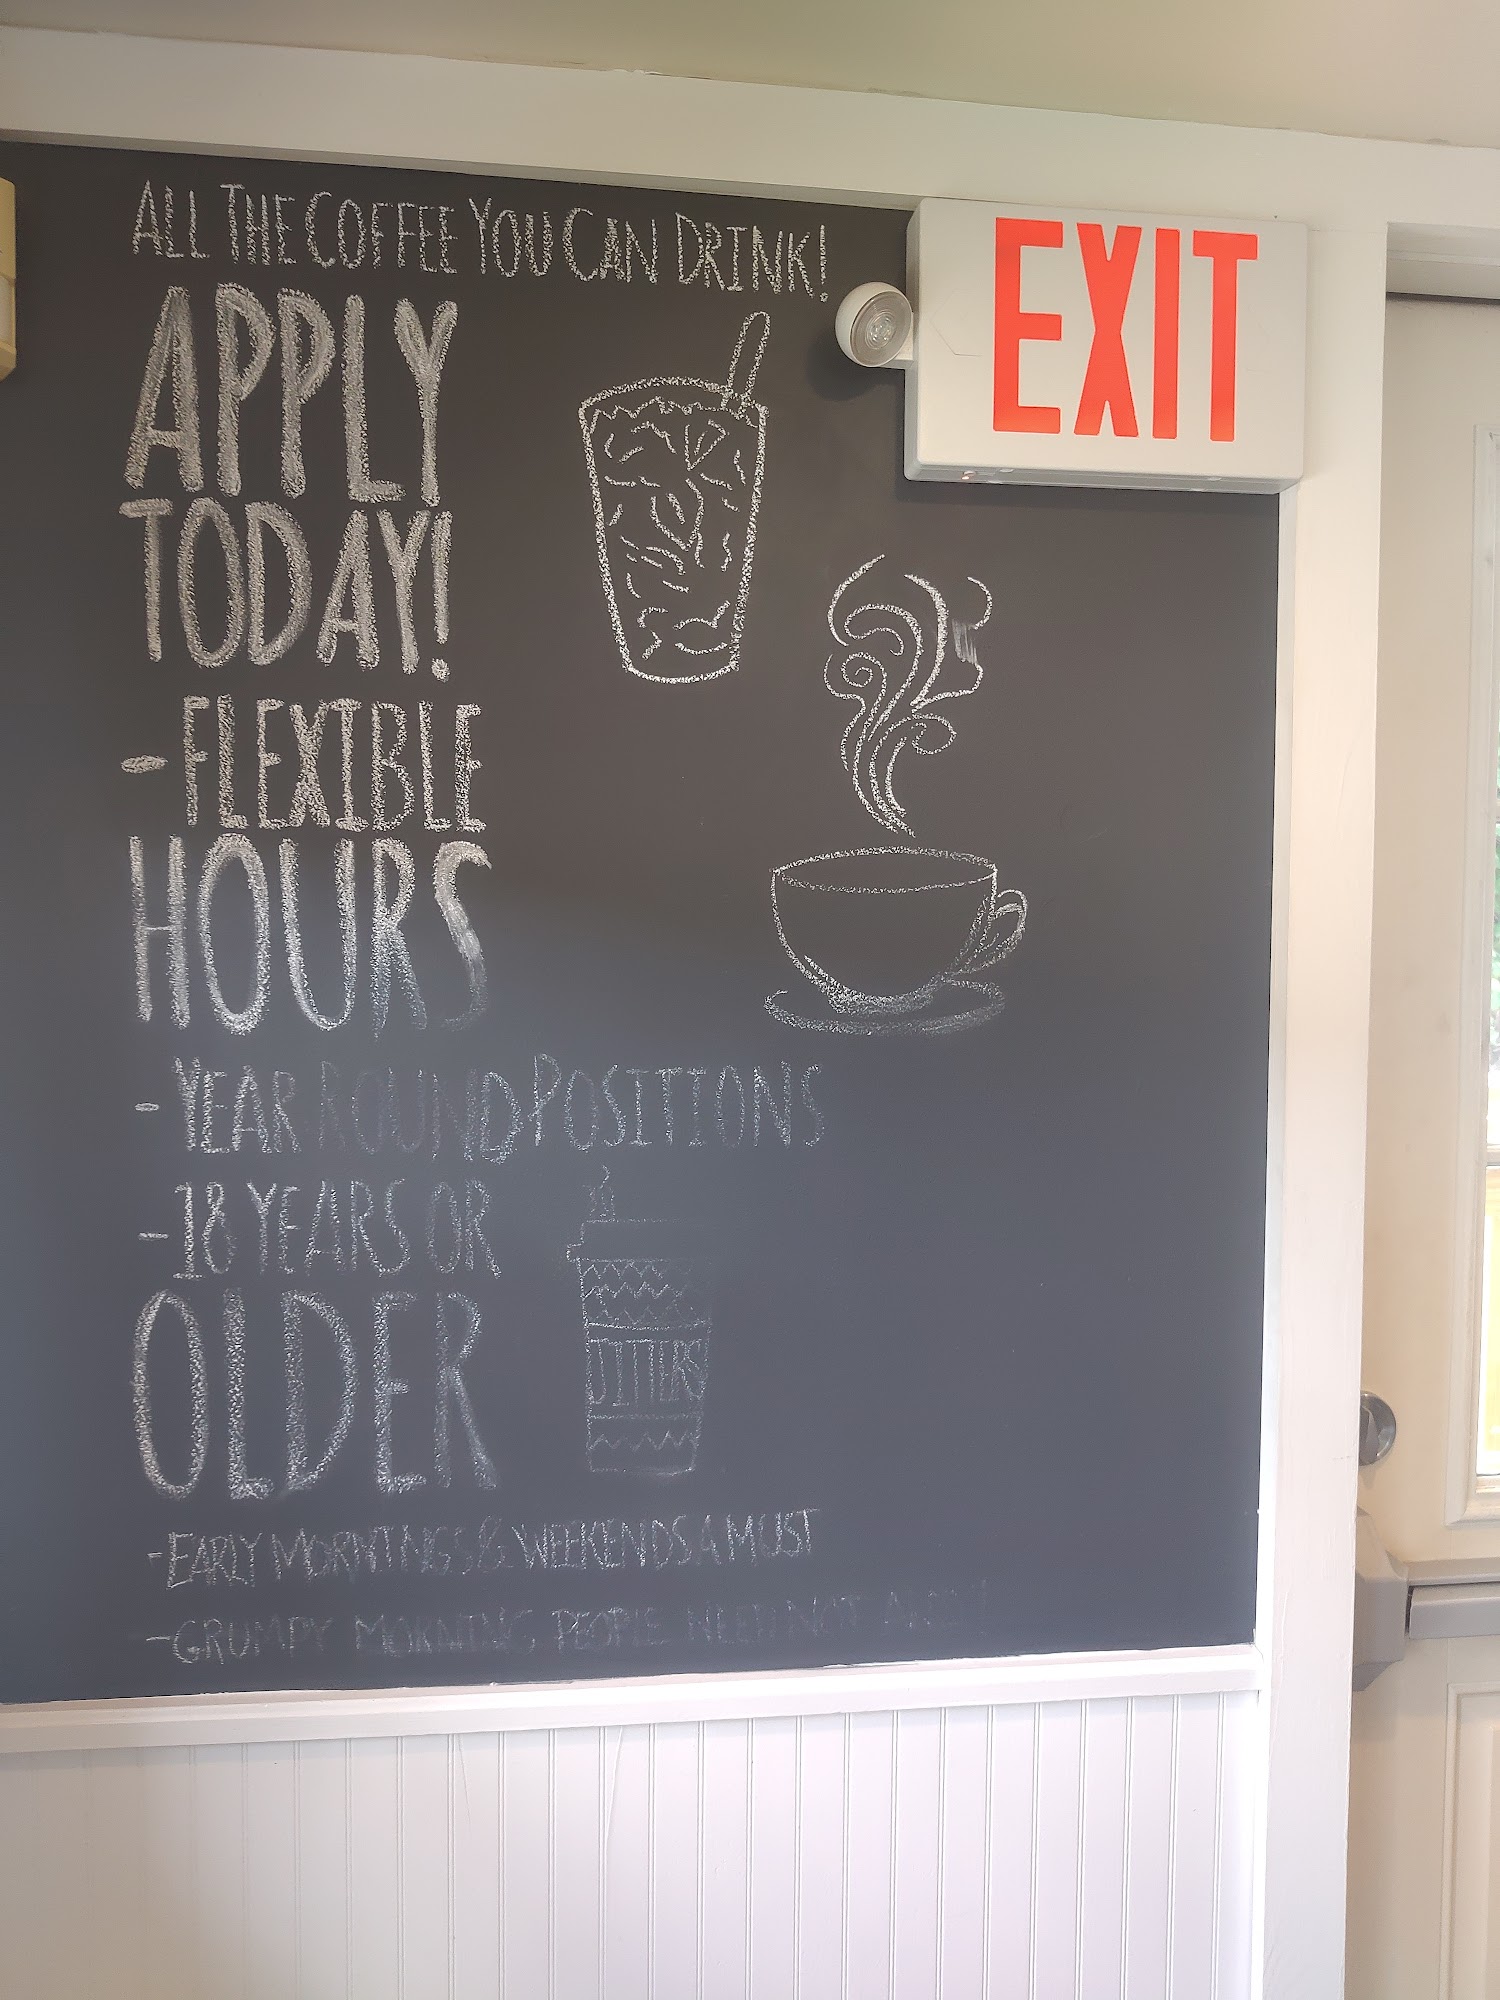 ALL THE COFFEE YOU CAN DRINK!
EXIT
APPLY
TODAY!
-FLEXIBLE
HOURS
-YEAR ROUND POSITIONS
-18 YEARS OR
OLDER
JITTERS
-EARLY MORNINGS & WEEKENDS A MUST
-GRUMPY MORNING PEOPLE NEED NOT